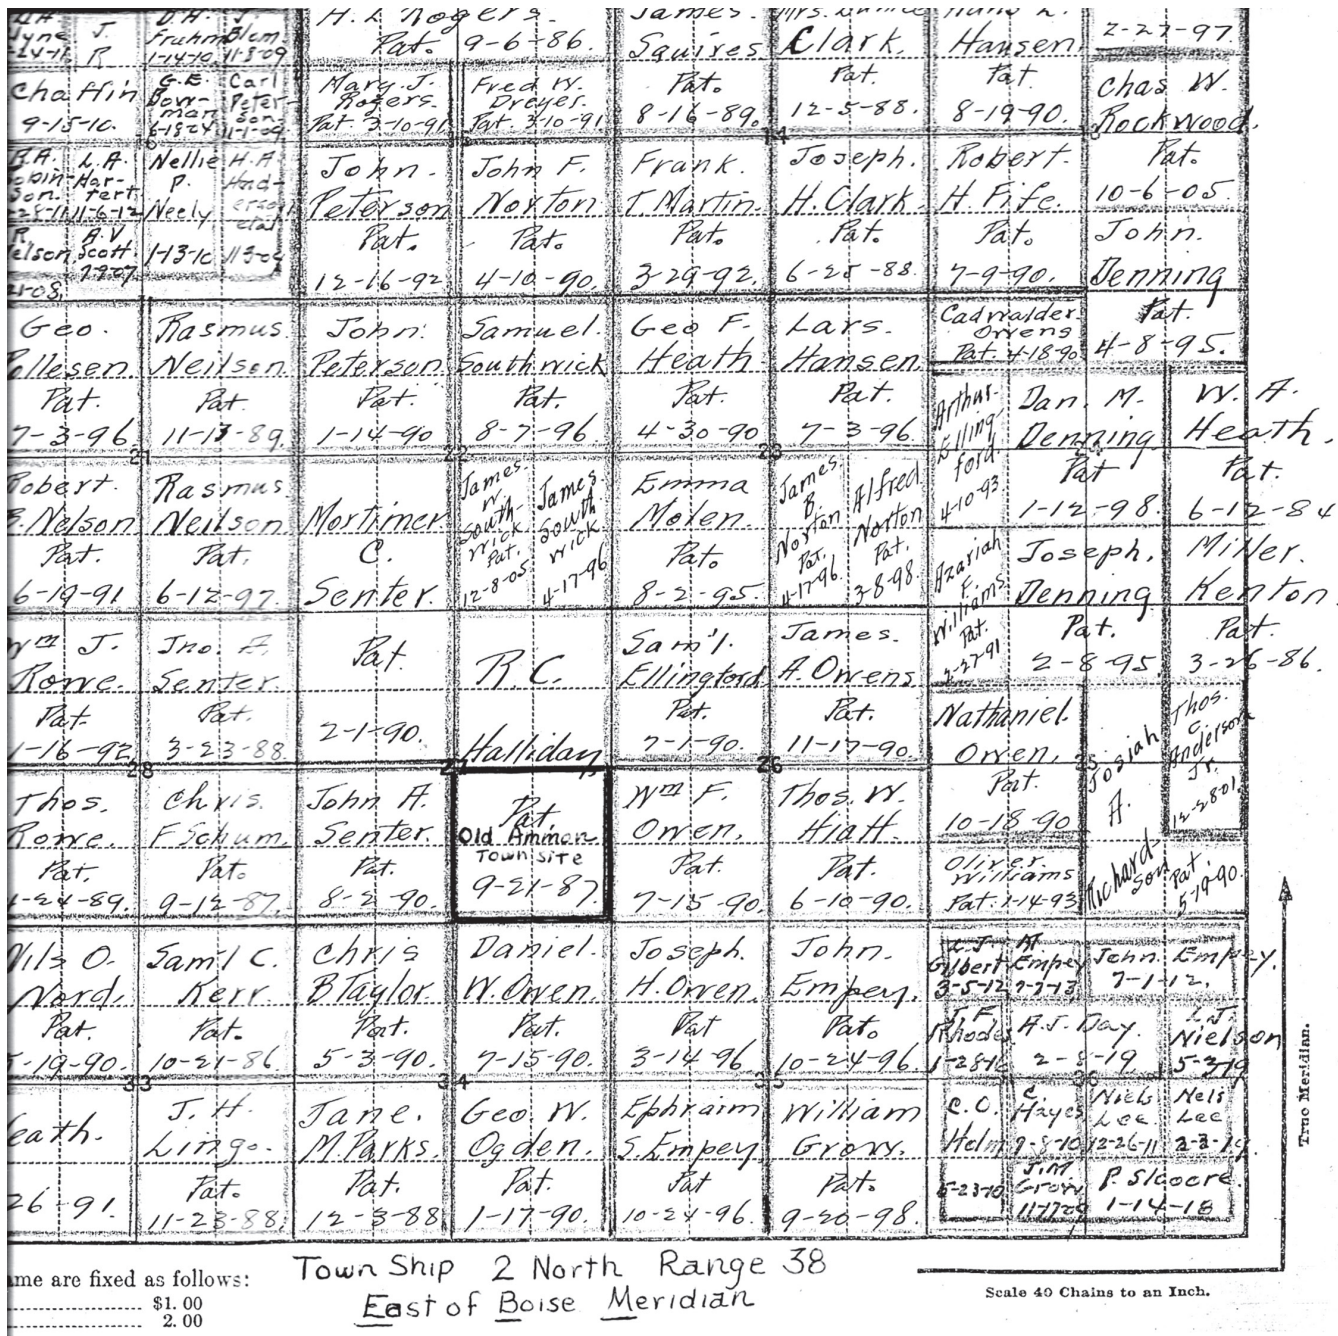 J.
R
Chaffin
9-15-10.
D.H.
Frahm
1-14-10
J.
Blom.
11-8-09
G.E.
Bow-
man
6-18-24
Carl
Peter-
son
11-1-09
H. L. Rogers.
Pat. 9-6-86.
James.
Squires
Pat.
8-16-89.
Clark.
Pat.
12-5-88.
Hansen
Pat
8-19-90.
2-27-97.
Mary J.
Rogers.
Pat 3-10-91
Fred W.
Dreyer.
Pat. 3-10-91
Chas W.
Rockwood.
Pat.
10-6-05.
L.A.
Har-
tert
11-6-12
A.V.
Scott
Nellie
P.
Neely
1-13-10
H.A
And-
erson
etal
John.
Peterson
Pat.
12-16-92
John F.
Norton
Pat.
4-10-90.
Frank.
T. Martin.
Pat.
3-29-92.
Joseph.
H. Clark.
Pat.
6-25-88.
Robert.
H. Fife.
Pat.
7-9-90.
John.
Denning
Pat.
4-8-95.
Geo.
Ollesen.
Pat.
7-3-96.
Rasmus
Neilson.
Pat.
11-13-89.
John.
Peterson.
Pat.
1-14-90
Samuel.
Southwick
Pat.
8-7-96.
Geo F.
Heath
Pat.
4-30-90
Lars.
Hansen.
Pat.
7-3-96.
Cadwalder.
Owens
Pat. 4-18-90
21
22
23
24
Arthur.
Elling
ford.
4-10-93.
Dan. M.
Denning
Pat
1-12-98.
W. A.
Heath.
Pat.
6-12-84
Robert.
Nelson
Pat.
6-19-91
Rasmus.
Neilson
Pat.
6-12-97
Mortimer.
C.
Senter.
Pat.
2-1-90.
James
W
South-
wick
Pat.
12-8-05
James
South
wick
4-17-96
Emma
Molen.
Pat.
8-2-95.
James.
B.
Norton
Pat.
4-17-96.
Alfred
Norton
Pat.
3-8-98.
Azariah
F.
Williams.
Pat.
2-27-91
Joseph.
Denning
Pat.
2-8-95
Miller.
Kenton.
Pat.
3-26-86.
Wm J.
Rowe.
Pat.
1-16-92
Jno. A.
Senter.
Pat.
3-23-88.
R.C.
Halliday
Sam'l.
Ellingford
Pat.
7-1-90.
James.
A. Owens
Pat.
11-17-90.
Nathaniel.
Owen.
Pat.
10-18-90
Josiah
A.
Richard
son
Pat.
5-19-90.
Thos.
C.
Anderson
Jr.
12-28-01.
28
27
26
25
Thos.
Rowe.
Pat.
1-24-89.
Chris.
F Schum.
Pat.
9-12-87.
John A.
Senter.
Pat.
8-2-90.
Pat.
Old Ammon
Townsite
9-21-87.
Wm F.
Owen.
Pat.
7-15-90.
Thos. W.
Hiatt.
Pat.
6-10-90.
Oliver.
Williams
Pat. 1-14-93
Nils O.
Nord.
Pat.
-19-90.
Sam'l C.
Kerr.
Pat.
10-21-86
Chris
B Taylor.
Pat.
5-3-90.
Daniel.
W. Owen.
Pat.
7-15-90.
Joseph.
H. Owen.
Pat
3-14-96
John.
Empey.
Pat.
10-24-96.
Gilbert
3-5-12
Empey
7-7-13
John. Empey.
7-1-12.
J.F.
Rhodes
1-28-16
A.J. Day.
2-8-19
L.J.
Nielson
33
34
35
36
eath.
26-91.
J. H.
Lingo.
Pat.
11-23-88.
Jane.
M. Parks.
Pat.
12-3-88
Geo W.
Ogden.
Pat.
1-17-90.
Ephraim
S. Empey
Pat
10-24-96.
William
Grow.
Pat.
9-20-98.
C.O.
Helm
5-23-10
C.
Hayes
9-8-10
Niels
Lee
12-26-11
Nels
Lee
J.M
Grow
P. Slcoore.
1-14-18
True Meridian.
ame are fixed as follows:
$1. 00
2. 00
Town Ship 2 North Range 38
East of Boise Meridian
Scale 40 Chains to an Inch.